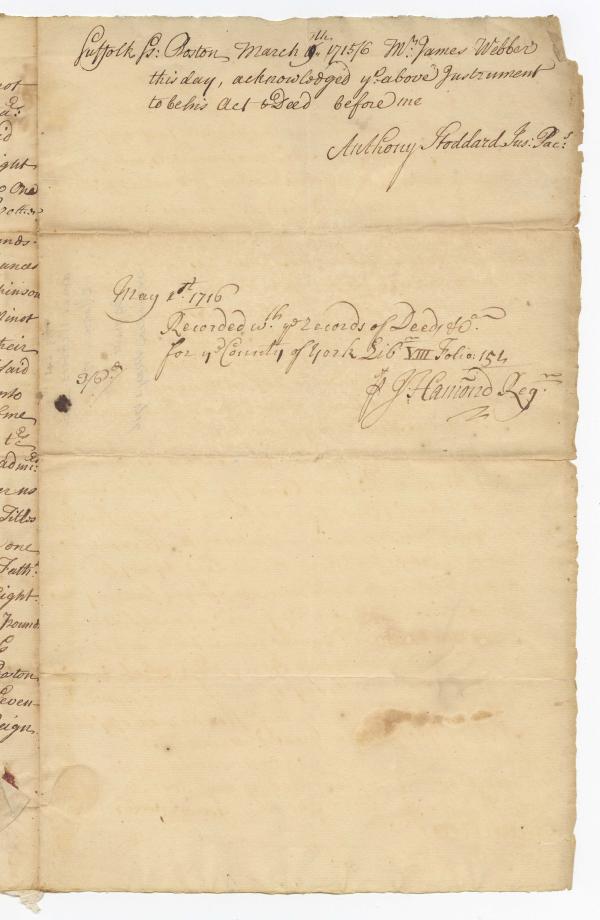 not
id
ight
One
ands
ances
kinson
Minot
their
said
into
me
admi:
er us
Titles
one
Fath:
Eight
Pound
Boston
Seven
Reign
Suffolk ss: Boston March 9th. 1715/6 Mr. James Webber
this day, acknowledged ye above Instrument
to be his Act & Deed before me
Anthony Stoddard Jus: Pac:s
May 1st. 1716
Recorded wth ye records of Deeds &c.
for ye County of York Libr VIII Folio: 154
J. Hamond Regr